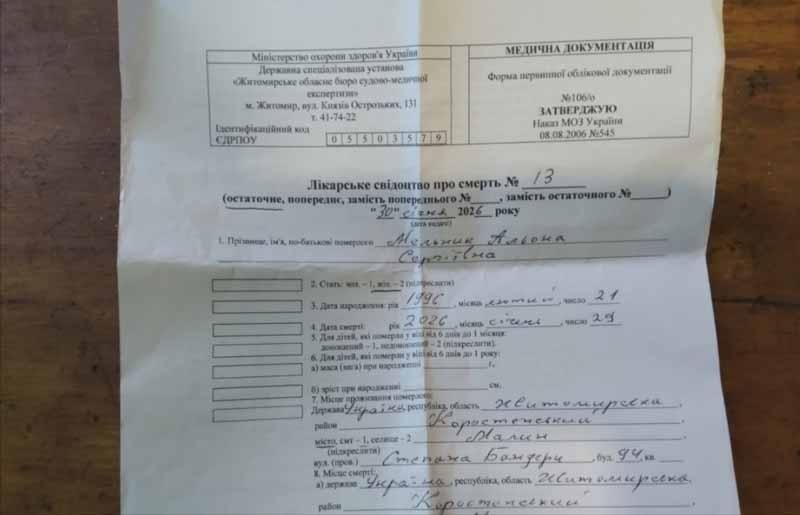 Міністерство охорони здоров'я України
Державна спеціалізована установа
«Житомирське обласне бюро судово-медичної
експертизи»
м. Житомир, вул. Князів Острозьких, 131
т. 41-74-22
Ідентифікаційний код
ЄДРПОУ 0 5 5 0 3 5 7 9
МЕДИЧНА ДОКУМЕНТАЦІЯ
Форма первинної облікової документації
№106/о
ЗАТВЕРДЖУЮ
Наказ МОЗ України
08.08.2006 №545
Лікарське свідоцтво про смерть № 13
(остаточне, попереднє, замість попереднього №____, замість остаточного №____)
"30" січня 2026 року
(дата видачі)
1. Прізвище, ім'я, по-батькові померлого Мельник Альона
Сергіївна
2. Стать: чол. – 1, жін. – 2 (підкреслити)
3. Дата народження: рік 1996, місяць лютий, число 21
4. Дата смерті: рік 2026, місяць січень, число 29
5. Для дітей, які померли у віці від 6 днів до 1 місяця:
доношений – 1, недоношений – 2 (підкреслити).
6. Для дітей, які померли у віці від 6 днів до 1 року:
а) маса (вага) при народженні ____ г,
б) зріст при народженні ____ см.
7. Місце проживання померлого:
Держава Україна, республіка, область Житомирська,
район Коростенський,
місто, смт – 1, селище – 2 Малин
(підкреслити)
вул. (пров.) Степана Бандери, буд. 94, кв.
8. Місце смерті:
а) держава Україна, республіка, область Житомирська,
район Коростенський